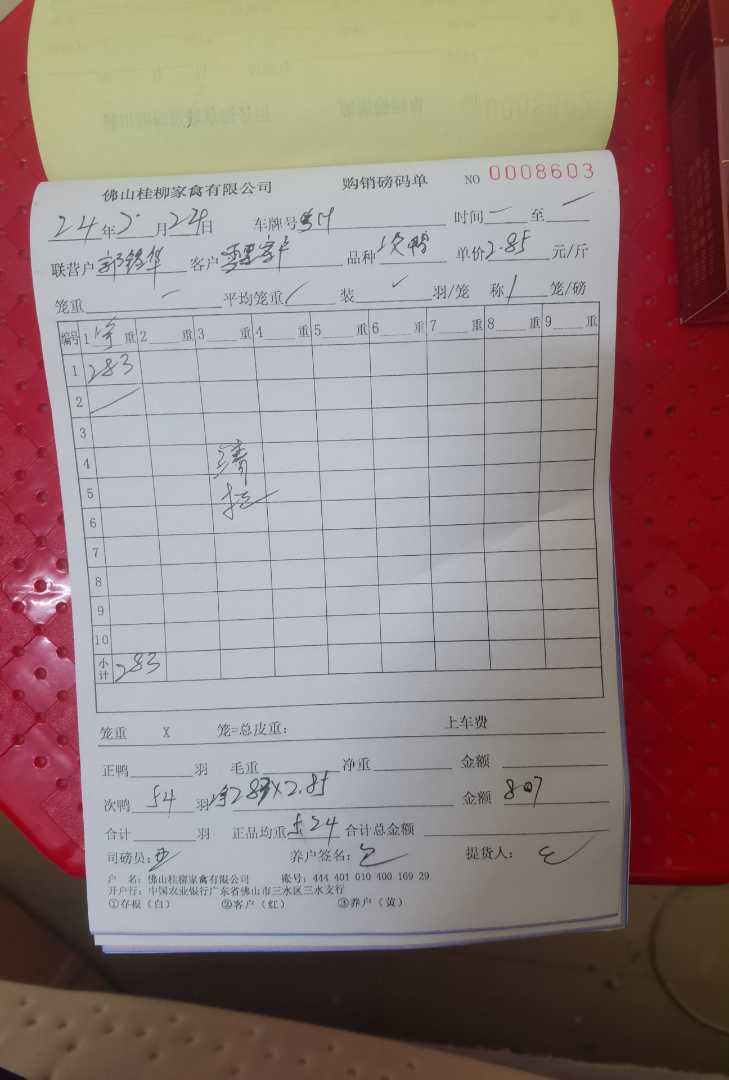 佛山桂柳家禽有限公司 购销磅码单 NO 0008603
24年 月24日 车牌号 时间一至一
联营户 客户零星客户 品种次鸭 单价2.85元/斤
笼重 平均笼重 装 羽/笼 称 笼/磅
编号 1净重 2 重 3 重 4 重 5 重 6 重 7 重 8 重 9 重
1 283
2
3
4 清
5
6
7
8
9
10
小计 283
笼重 X 笼=总皮重: 上车费
正鸭 羽 毛重 净重 金额
次鸭 54 羽 净283×2.85 金额 807
合计 羽 正品均重5.24 合计总金额
司磅员: 养户签名: 提货人:
户 名: 佛山桂柳家禽有限公司 账号: 444 401 010 400 169 29
开户行: 中国农业银行广东省佛山市三水区三水支行
①存根(白) ②客户(红) ③养户(黄)